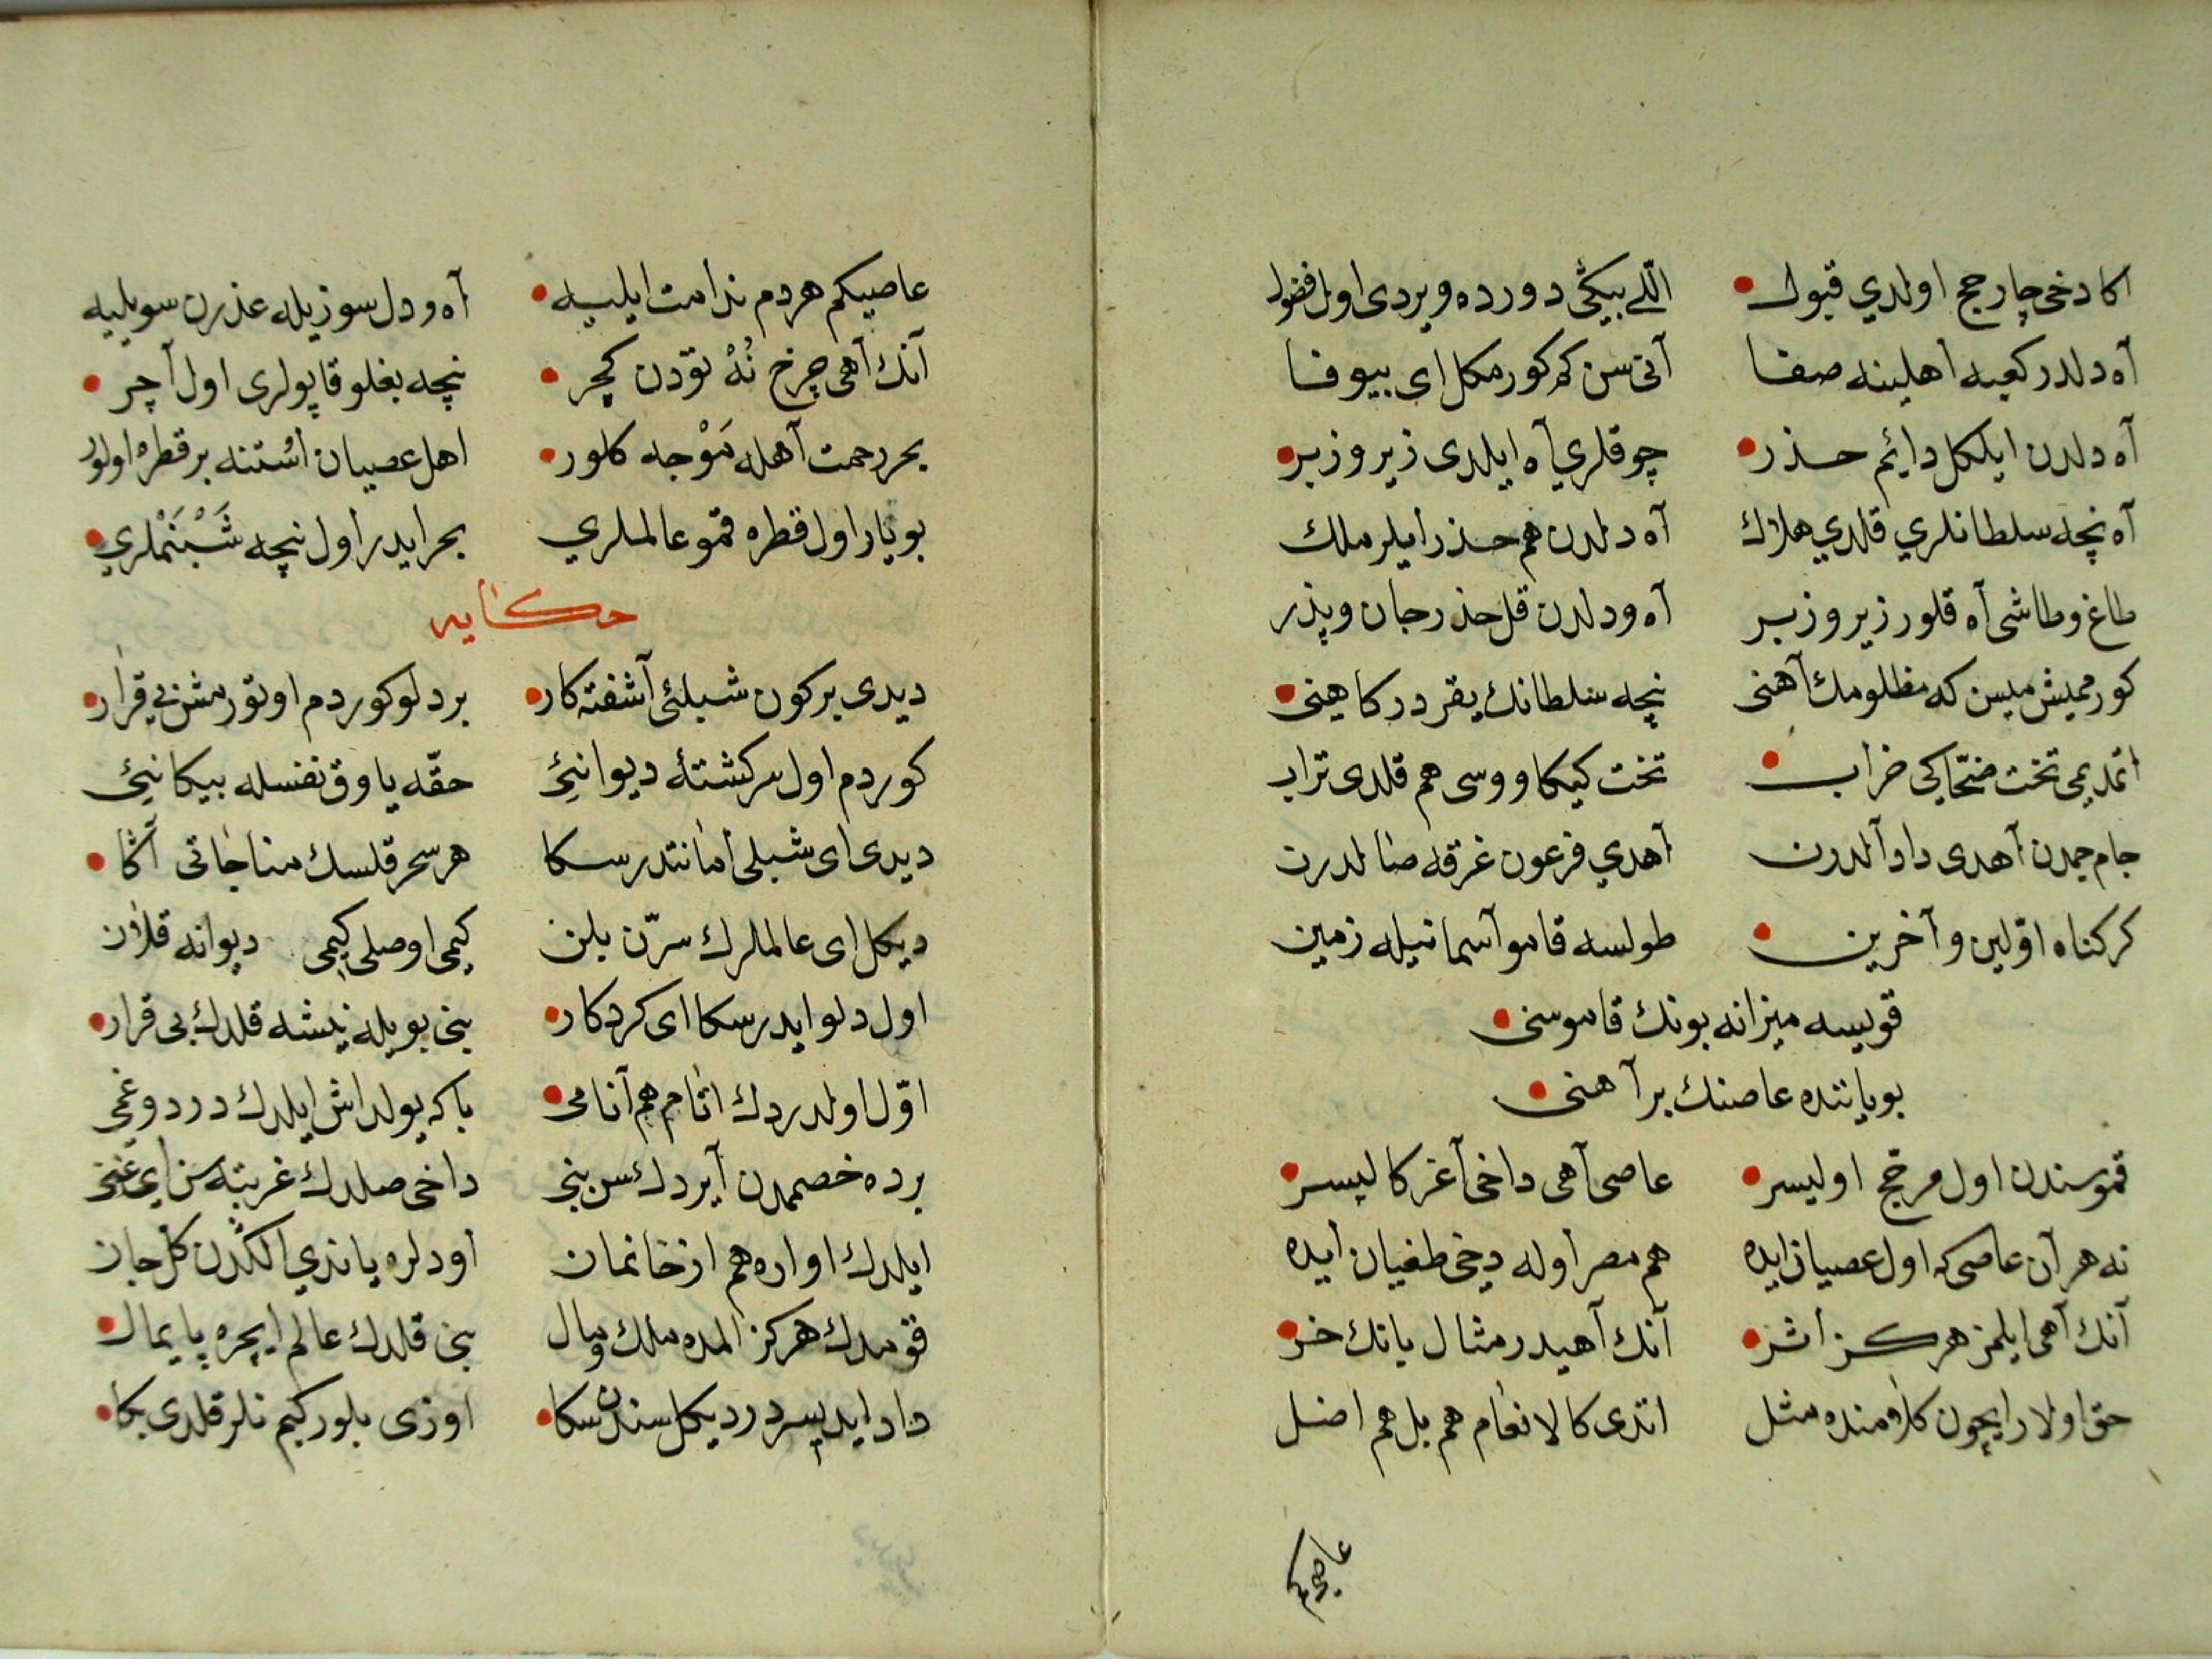 اكا دخی چار حج اولدي قبول اللی بیكی دورده ویردی اول فضول
آه دلدر كعبه اهلینه صفا آنی سن كم كورمكل ای بیوفا
آه دلدن ایلكل دایٔم حذر چوقلري آه ایلدی زیر و زبر
آه نچه سلطانلري قلدي هلاك آه دلدن هم حذر ایلر ملك
طاغ و طاشی آه قلور زیر و زبر آه و دلدن قل حذر جان و پذر
كورممیش میسن كه مظلومك آهنی نیچه سلطانك یقر دركاهینی
اتمدیمی تخت ضحّاكی خراب تخت كیكاووسی هم قلدی تراب
جام جمدن آهدی داد آلدرن آهدي فرعون غرقه صالدرن
كر كناه اوّلین و آخرین طولسه قامو آسمانیله زمین
قویسه میزانه بونك قاموسنی
بویاننده عاصنك بر آهنی
قموسندن اول مرجّح اولیسر عاصی آهی داخی آغر كالیسر
نه هر آن عاصی كه اول عصیان ایده هم مصر اوله دیخی طغیان ایده
آنك آهی ایلمز هركز اثر آنك آهیدر مثال بانك خر
حق اولار ایچون كلامنده مثل اتدی كالانعام هم بل هم اضل
عاصیكم
عاصیكم هردم ندامت ایلیه آه و دل سوزیله عذرن سویلیه
آنك آهی چرخ نُهْ تودن كچر نیچه بغلو قاپولری اول آچر
بحر رحمت آهله مَوْجه كلور اهل عصیان اُستنه بر قطره اولور
بویار اول قطره قمو عالملري بحر ایدر اول نیچه شَبْنَمْلري
حكایه
دیدی بر كون شبلیٔ آشفته كار بر دلو كوردم اوتورمش بی قرار
كوردم اول سركشتهٔ دیوانیٔی حقّه یاوق نفسله بیكانیٔی
دیدی ای شبلی امانتدر سكا هر سحر قلسك مناجاتی آكا
دیكل ای عالملرك سرّن بلن كیمی اوصلی كیمی دیوانه قلان
اول دلو ایدر سكا ای كردكار بنی بویله نیشه قلدك بی قرار
اوّل اولدردك اتام هم آنامی باكه یولداش ایلدك درد و غمی
برده خصممدن آیردك سن بنی داخی صلدك غربته سن ای غنی
ایلدك اواره هم از خانمان اودلره یاندي الكدن كل جان
قومدك هركز المده ملك و مال بنی قلدك عالم ایچره پایمال
داد ایدیسردر دیكل سندن سكا اوزی بلور كیم نلر قلدی بكا